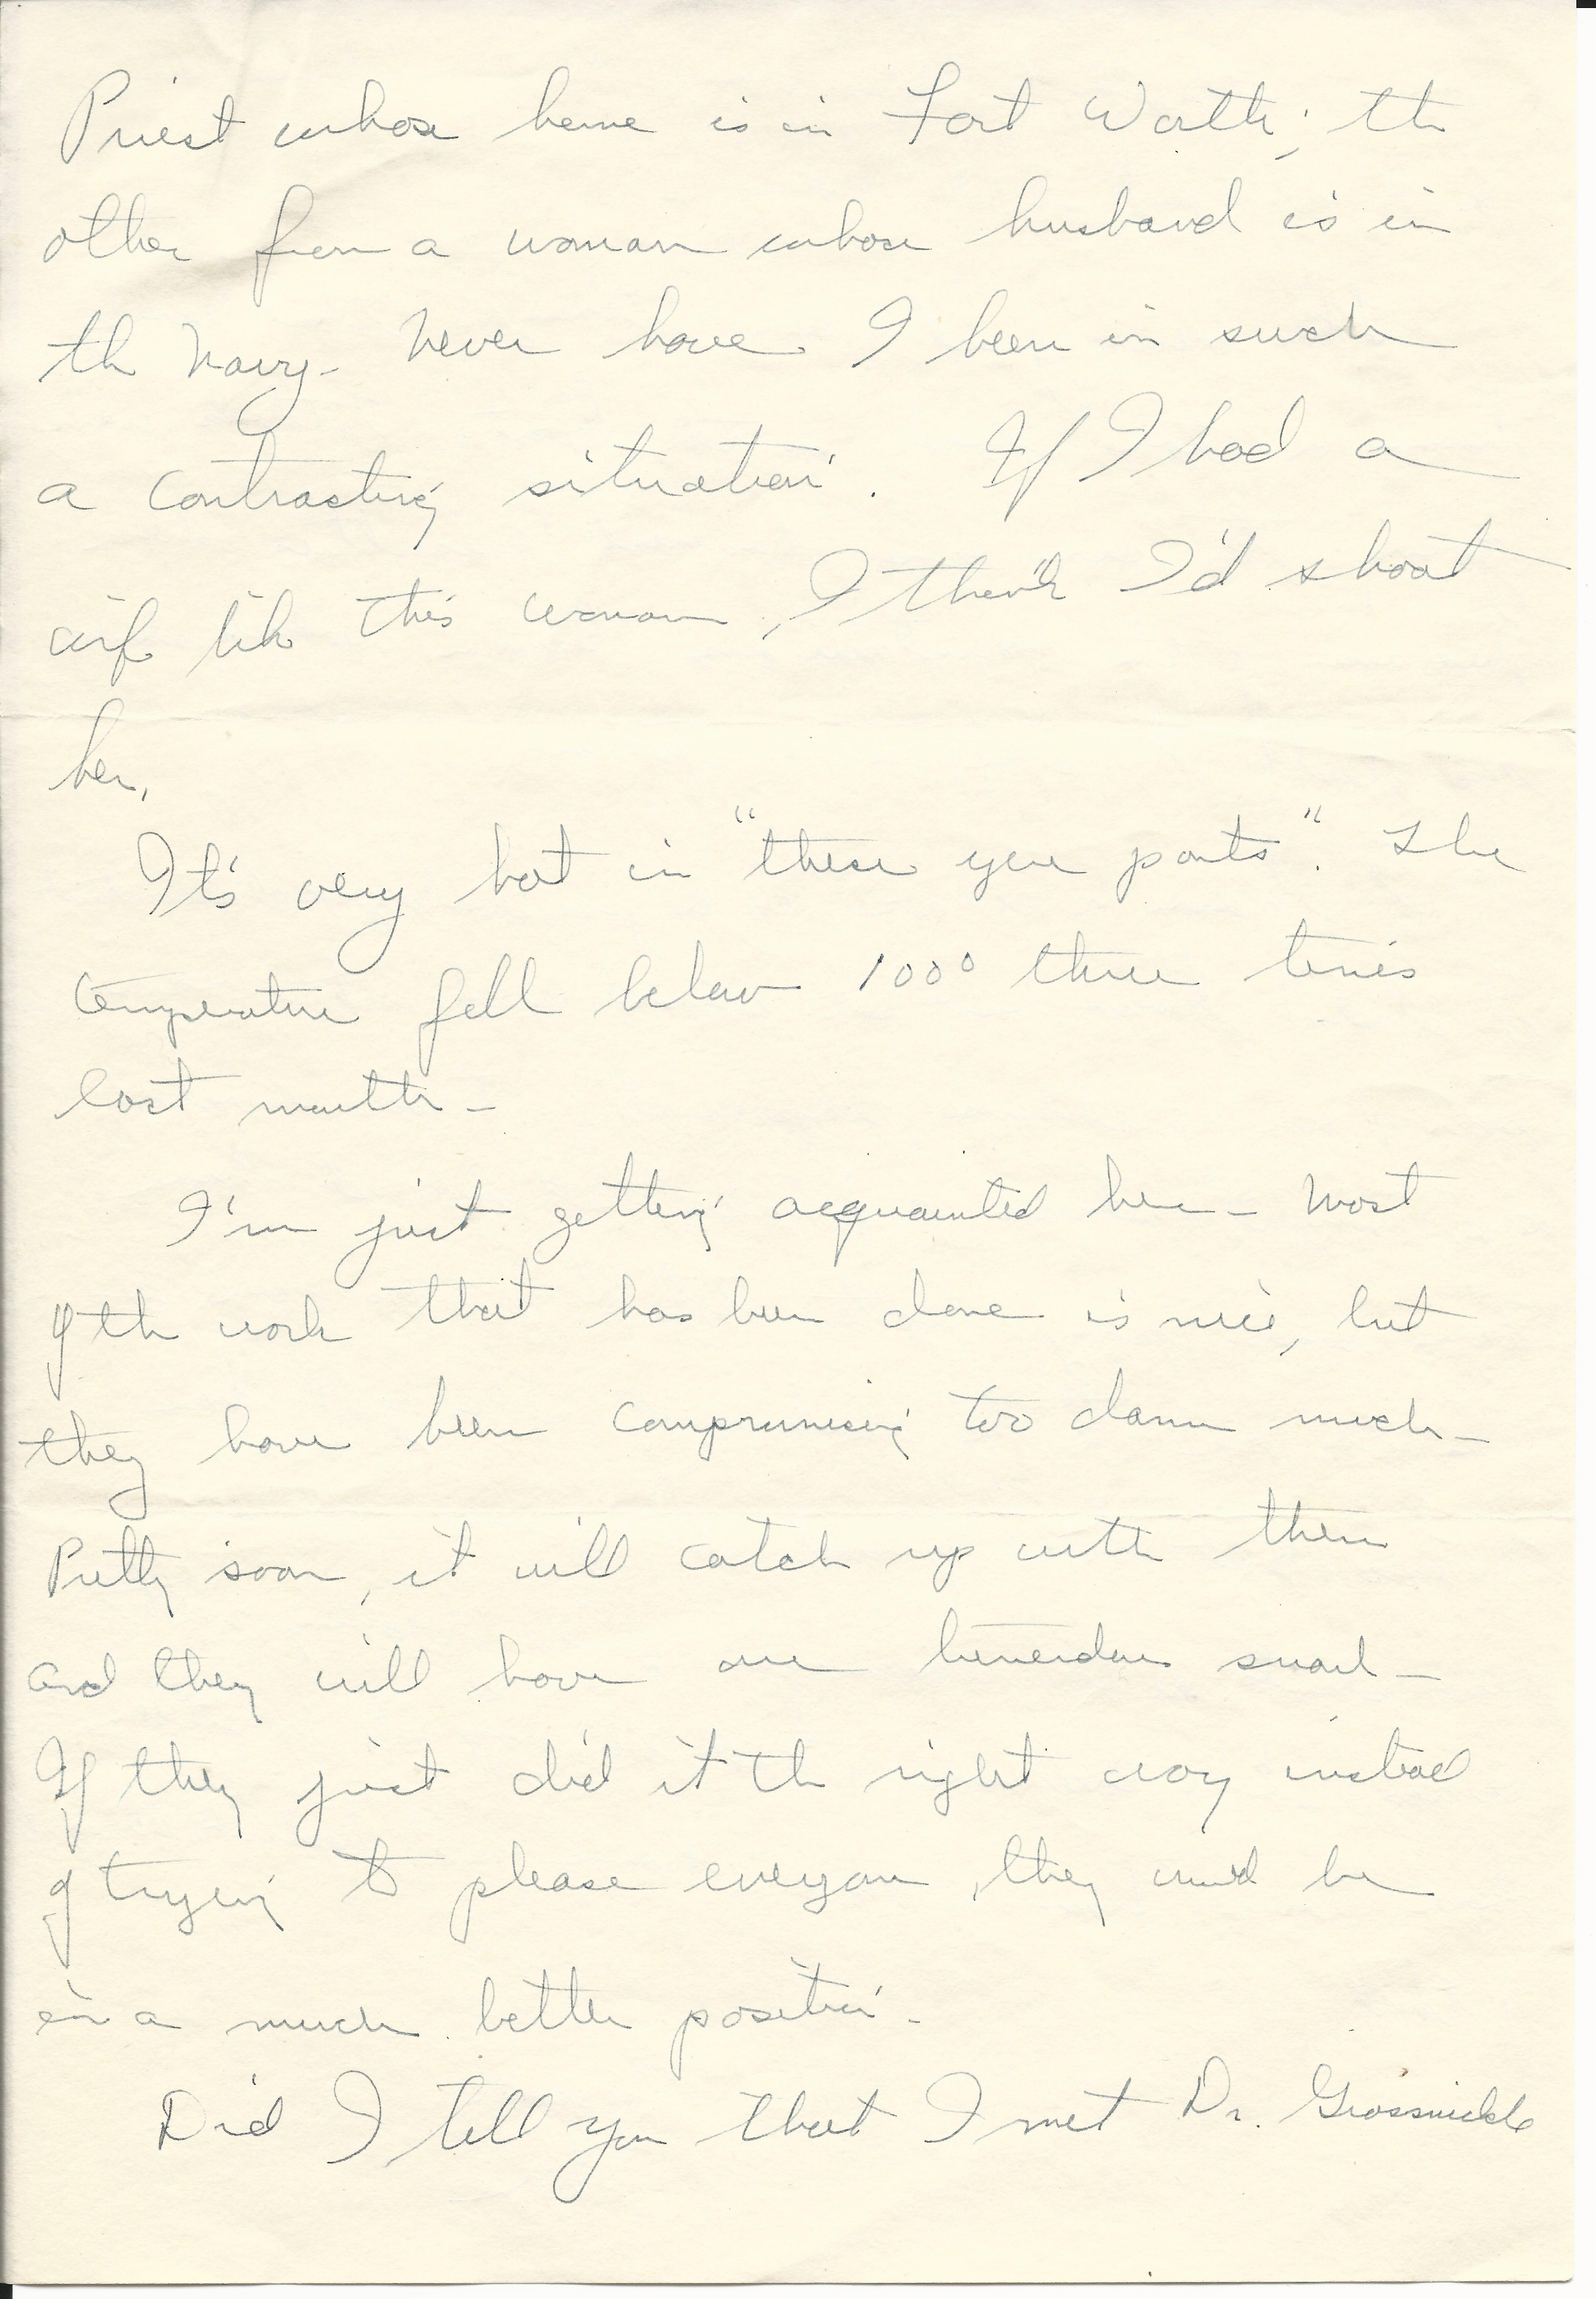 Priest whose home is in Fort Worth; the
other from a woman whose husband is in
the Navy - Never have I been in such
a contrasting situation. If I had a
wife like this woman, I think I'd shoot
her.
It's very hot in "these yere parts". The
temperature fell below 100° three times
last month -
I'm just getting acquainted here - Most
of the work that has been done is nice, but
they have been compromising too damn much -
Pretty soon, it will catch up with them
and they will have one tremendous snarl -
If they just did it the right way instead
of trying to please everyone, they would be
in a much better position -
Did I tell you that I met Dr. Grossnickle